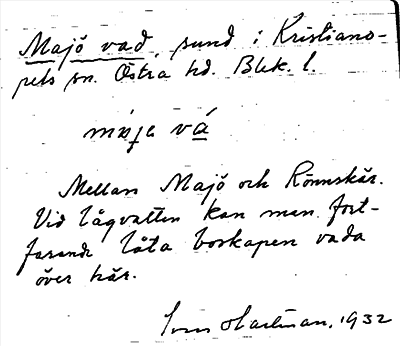 Majö vad, sund i Kristiano-
pels sn. Östra hd. Blek. l.
mája vá
Mellan Majö och Rönnskär.
Vid lågvatten kan man fort-
farande låta boskapen vada
över här.
Sven Hartman, 1932